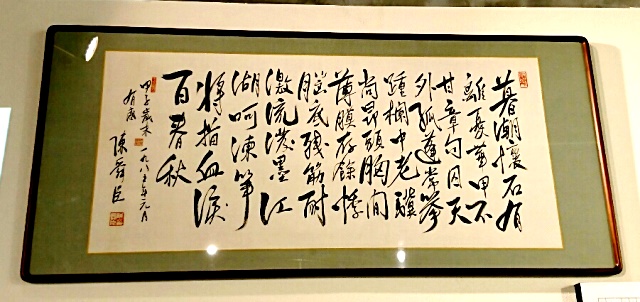 潮懷石有
離憂甲不
甘章句囚天
外孤蓬常夢
欄中老驥
尚昂頭胸間
薄膜存餘悸
腦底殘筋耐
激流潑墨江
湖呵凍筆
將指血淚
百春秋
甲子歲末
有感
一九八五年元月
陳舜臣